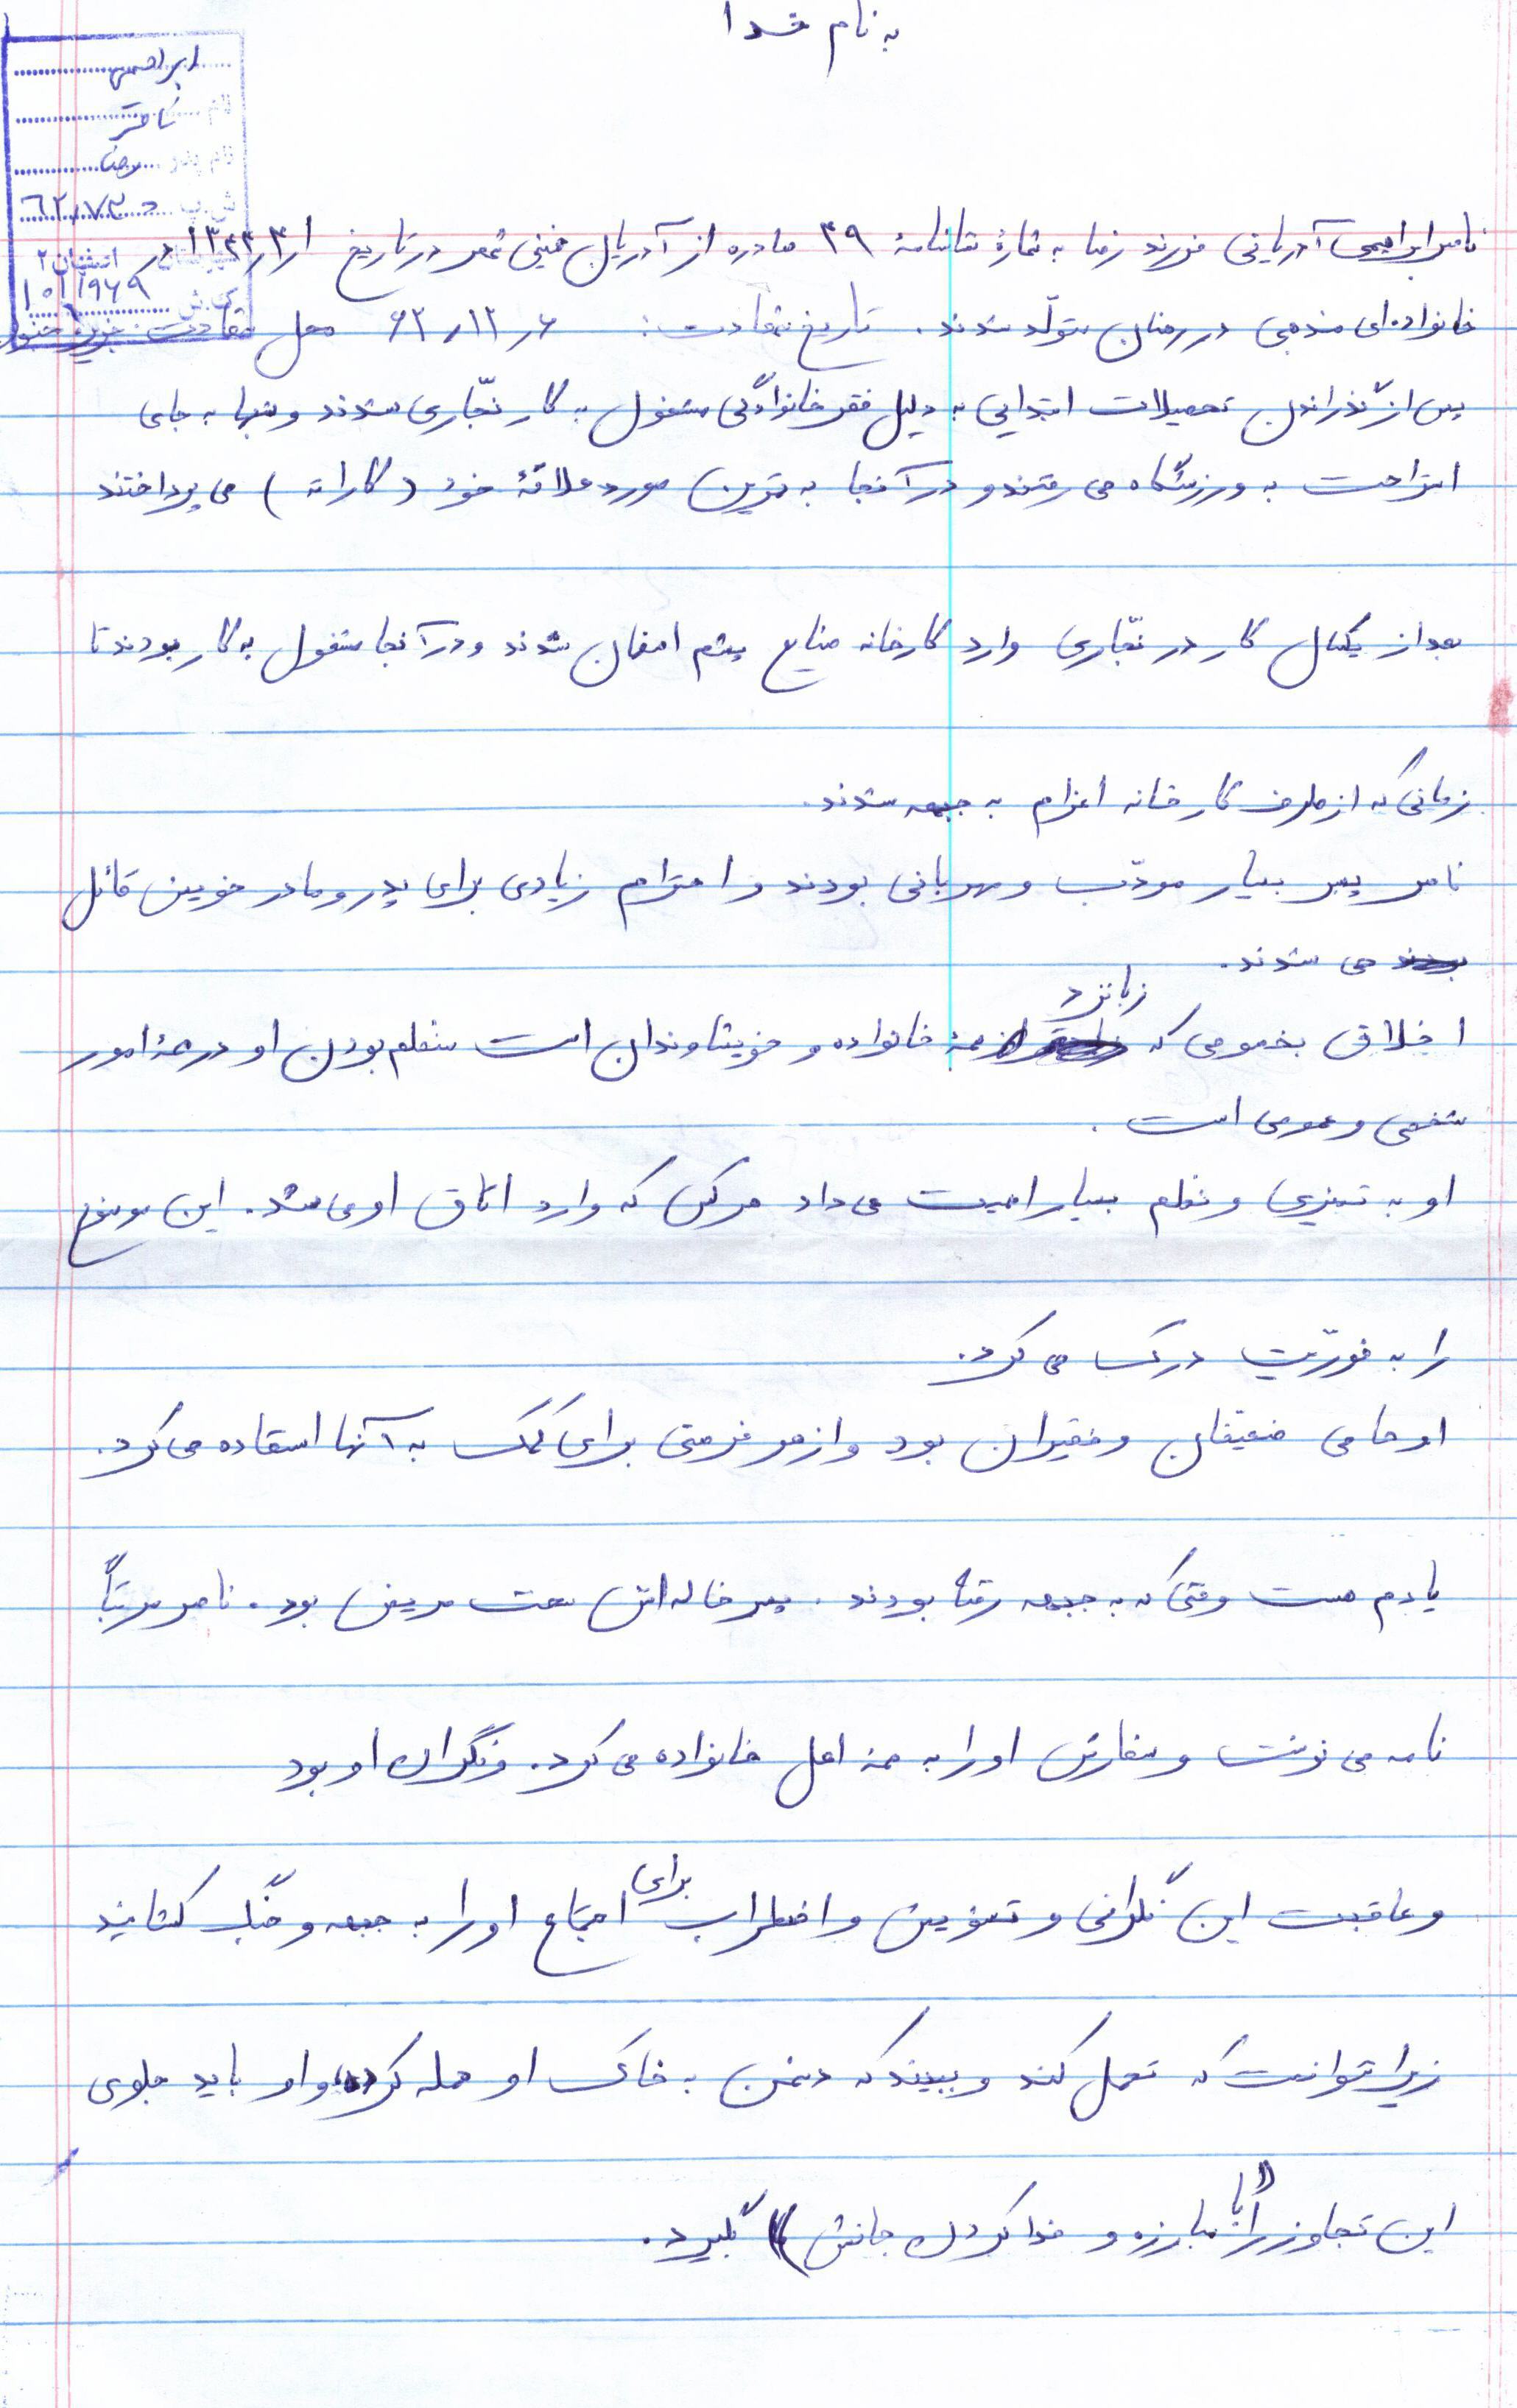 به نام خدا
ابراهیمی
نام ناصر
نام پدر رضا
ش.پ ۶۲۰۷۳۰
۱۰۱۱۹۶۹
ناصر ابراهیمی آدریانی فرزند رضا به شمارهٔ شناسنامهٔ ۳۹ صادره از آدریان خمینی شهر در تاریخ ۱۳۴۳/۳/۱ در
خانواده‌ای مذهبی در رهنان متولّد شدند. تاریخ شهادت: ۶۳/۱۲/۶ محل شهادت جزیره مجنون
پس از گذراندن تحصیلات ابتدایی به دلیل فقر خانوادگی مشغول به کار نجّاری شدند و شبها به جای
استراحت به ورزشگاه می رفتند و در آنجا به تمرین مورد علاقهٔ خود (کاراته) می پرداختند
بعد از یکسال کار در نجّاری وارد کارخانه صنایع پشم اصفهان شدند و در آنجا مشغول به کار بودند تا
زمانی که از طرف کارخانه اعزام به جبهه شدند.
ناصر پسر بسیار مودّب و مهربانی بودند و احترام زیادی برای پدر و مادر خویش قائل
می شدند.
اخلاق بخصوصی که زبانزد همهٔ خانواده و خویشاوندان است منظم بودن او در همهٔ امور
شخصی و عمومی است.
او به تمیزی و نظم بسیار اهمیت می داد هر کس که وارد اتاق او می شد. این موضوع
را به فوریّت درک می کرد.
او حامی ضعیفان و فقیران بود و از هر فرصتی برای کمک به آنها استفاده می کرد.
یادم هست وقتی که به جبهه رفته بودند. پسر خاله اش سخت مریض بود. ناصر مرتباً
نامه می نوشت و سفارش او را به همه اهل خانواده می کرد. و نگران او بود
و عاقبت این نگرانی و تشویش و اضطراب برای اجتماع او را به جبهه و جنگ کشانید
زیرا نتوانست که تحمل کند و ببیند که دشمن به خاک او حمله کرده و او باید جلوی
این تجاوز را «با مبارزه و فدا کردن جانش» بگیرد.